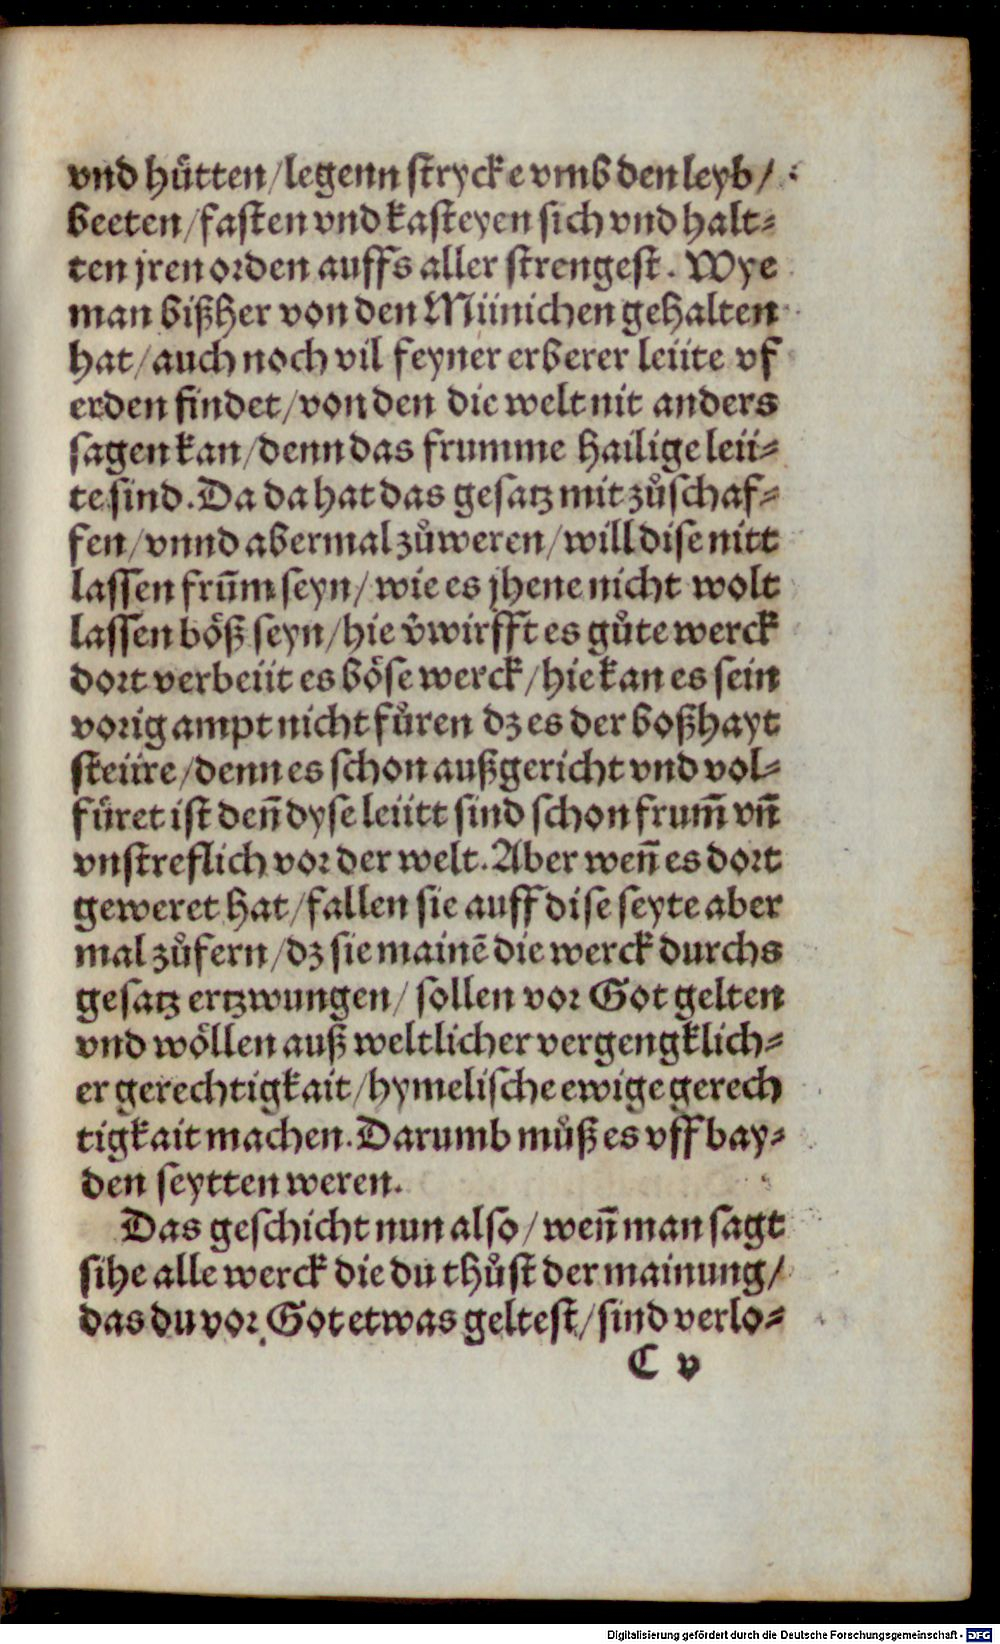 vnd hütten/legenn strycke vmb den leyb/
beeten/fasten vnd kasteyen sich vnd halt⸗
ten jren orden auffs aller strengest. Wye
man bißher von den Münichen gehalten
hat/auch noch vil feyner erberer leüte vf
erden findet/von den die welt nit anders
sagen kan/denn das frumme hailige leü⸗
te sind. Da da hat das gesatz mit zůschaf⸗
fen/vnnd abermal zůweren/will dise nitt
lassen frūm seyn/wie es jhene nicht wolt
lassen böß seyn/hie v̄wirfft es gůte werck
dort verbeüt es böse werck/hie kan es sein
vorig ampt nicht fůren dz es der boßhayt
steüre/denn es schon außgericht vnd vol⸗
füret ist deñ dyse leütt sind schon frum̄ vñ
vnstreflich vor der welt. Aber weñ es dort
geweret hat/fallen sie auff dise seyte aber
mal zůfern/dz sie mainē die werck durchs
gesatz ertzwungen/sollen vor Got gelten
vnd wöllen auß weltlicher vergengklich⸗
er gerechtigkait/hymelische ewige gerech
tigkait machen. Darumb můß es vff bay⸗
den seytten weren.
Das geschicht nun also/weñ man sagt
sihe alle werck die du thůst der mainung/
das du vor Got etwas geltest/sind verlo⸗
C v
Digitalisierung gefördert durch die Deutsche Forschungsgemeinschaft - DFG